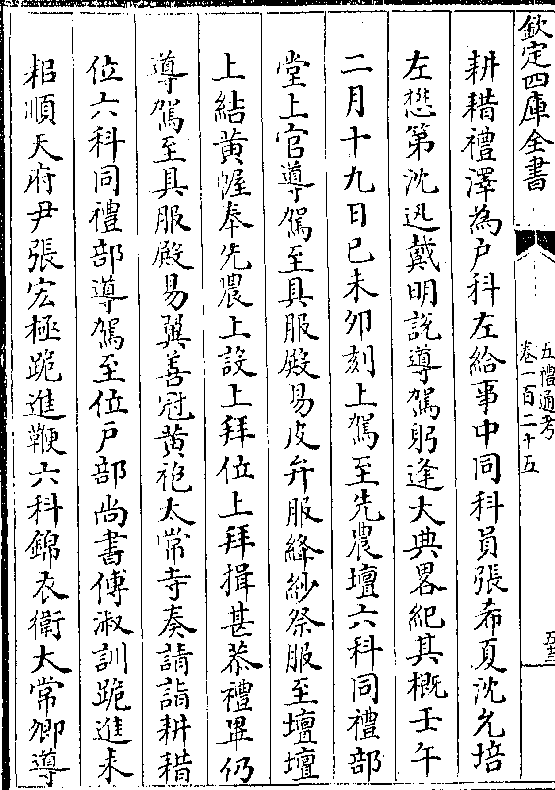 欽定四庫全書
五禮通考
卷一百二十五
五三
耕耤禮澤為户科左給事中同科員張希夏沈允培
左懋第沈迅戴明說導駕躬逢大典畧紀其概壬午
二月十九日己未卯刻上駕至先農壇六科同禮部
堂上官導駕至具服殿易皮弁服絳紗祭服至壇壇
上結黄幄奉先農上設上拜位上拜揖甚恭禮畢仍
導駕至具服殿易翼善冠黄袍太常寺奏請詣耕耤
位六科同禮部導駕至位戸部尚書傅淑訓跪進耒
耜順天府尹張宏極跪進鞭六科錦衣衛太常卿導